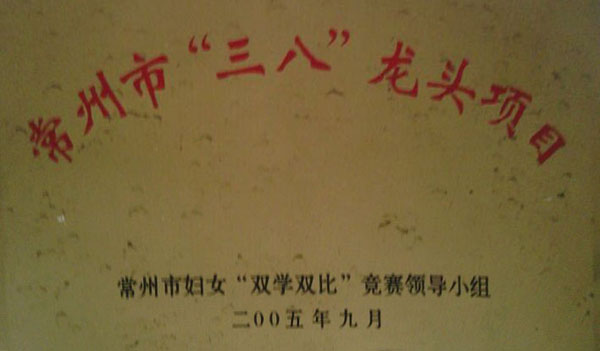 常州市“三八”龙头项目
常州市妇女“双学双比”竞赛领导小组
二00五年九月